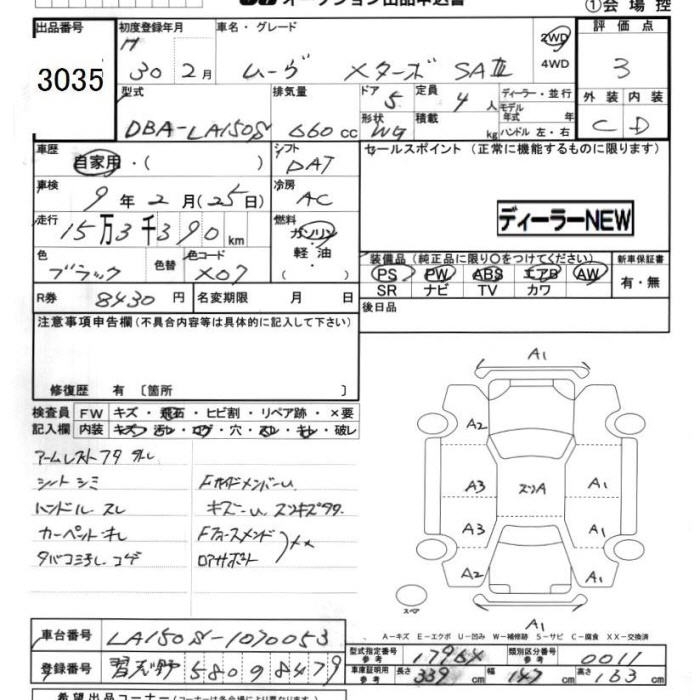 オークション出品申込書
①会場控
出品番号
3035
初度登録年月
H 30 2月
車名・グレード
ムーヴ メターズ SAⅢ
2WD
4WD
評価点
3
型式
DBA-LA150S
排気量
660cc
ドア
5
定員
4人
ディーラー・並行
モデル
年式 年
ハンドル 左・右
形状
WG
積載
kg
外装 内装
C D
車歴
自家用・( )
シフト
DAT
セールスポイント(正常に機能するものに限ります)
車検
9年2月(25日)
冷房
AC
走行
15万3千390km
燃料
ガソリン
軽油
( )
ディーラーNEW
色
ブラック
色替
色コード
X07
装備品(純正品に限り○をつけてください)
PS PW ABS エアB AW
SR ナビ TV カワ
新車保証書
有・無
R券 8430円
名変期限 月 日
後日品
注意事項申告欄(不具合内容等は具体的に記入して下さい)
修復歴 有〔箇所 〕
検査員 FW キズ・飛石・ヒビ割・リペア跡・×要
記入欄 内装 キズ・汚レ・コゲ・穴・スレ・キレ・破レ
アームレストフタ 外レ
シート シミ
ハンドル スレ
カーペット キレ
タバコ ヨゴレ コゲ
FサイドメンバーU
キズーU スソキズ
ロアサポート
××
A1
A2
A3 スソA A1
A3 A1
A2 A1
A1
スペア
A-キズ E-エクボ U-凹み W-補修跡 S-サビ C-腐食 XX-交換済
車台番号 LA150S-1070053
登録番号 習志野 580 9 8479
型式指定番号
参考
類別区分番号
参考
0011
車庫証明用
参考
長さ 339cm 幅 147cm 高さ 163cm
希望出品コーナー(コーナーは各会場により異なります)